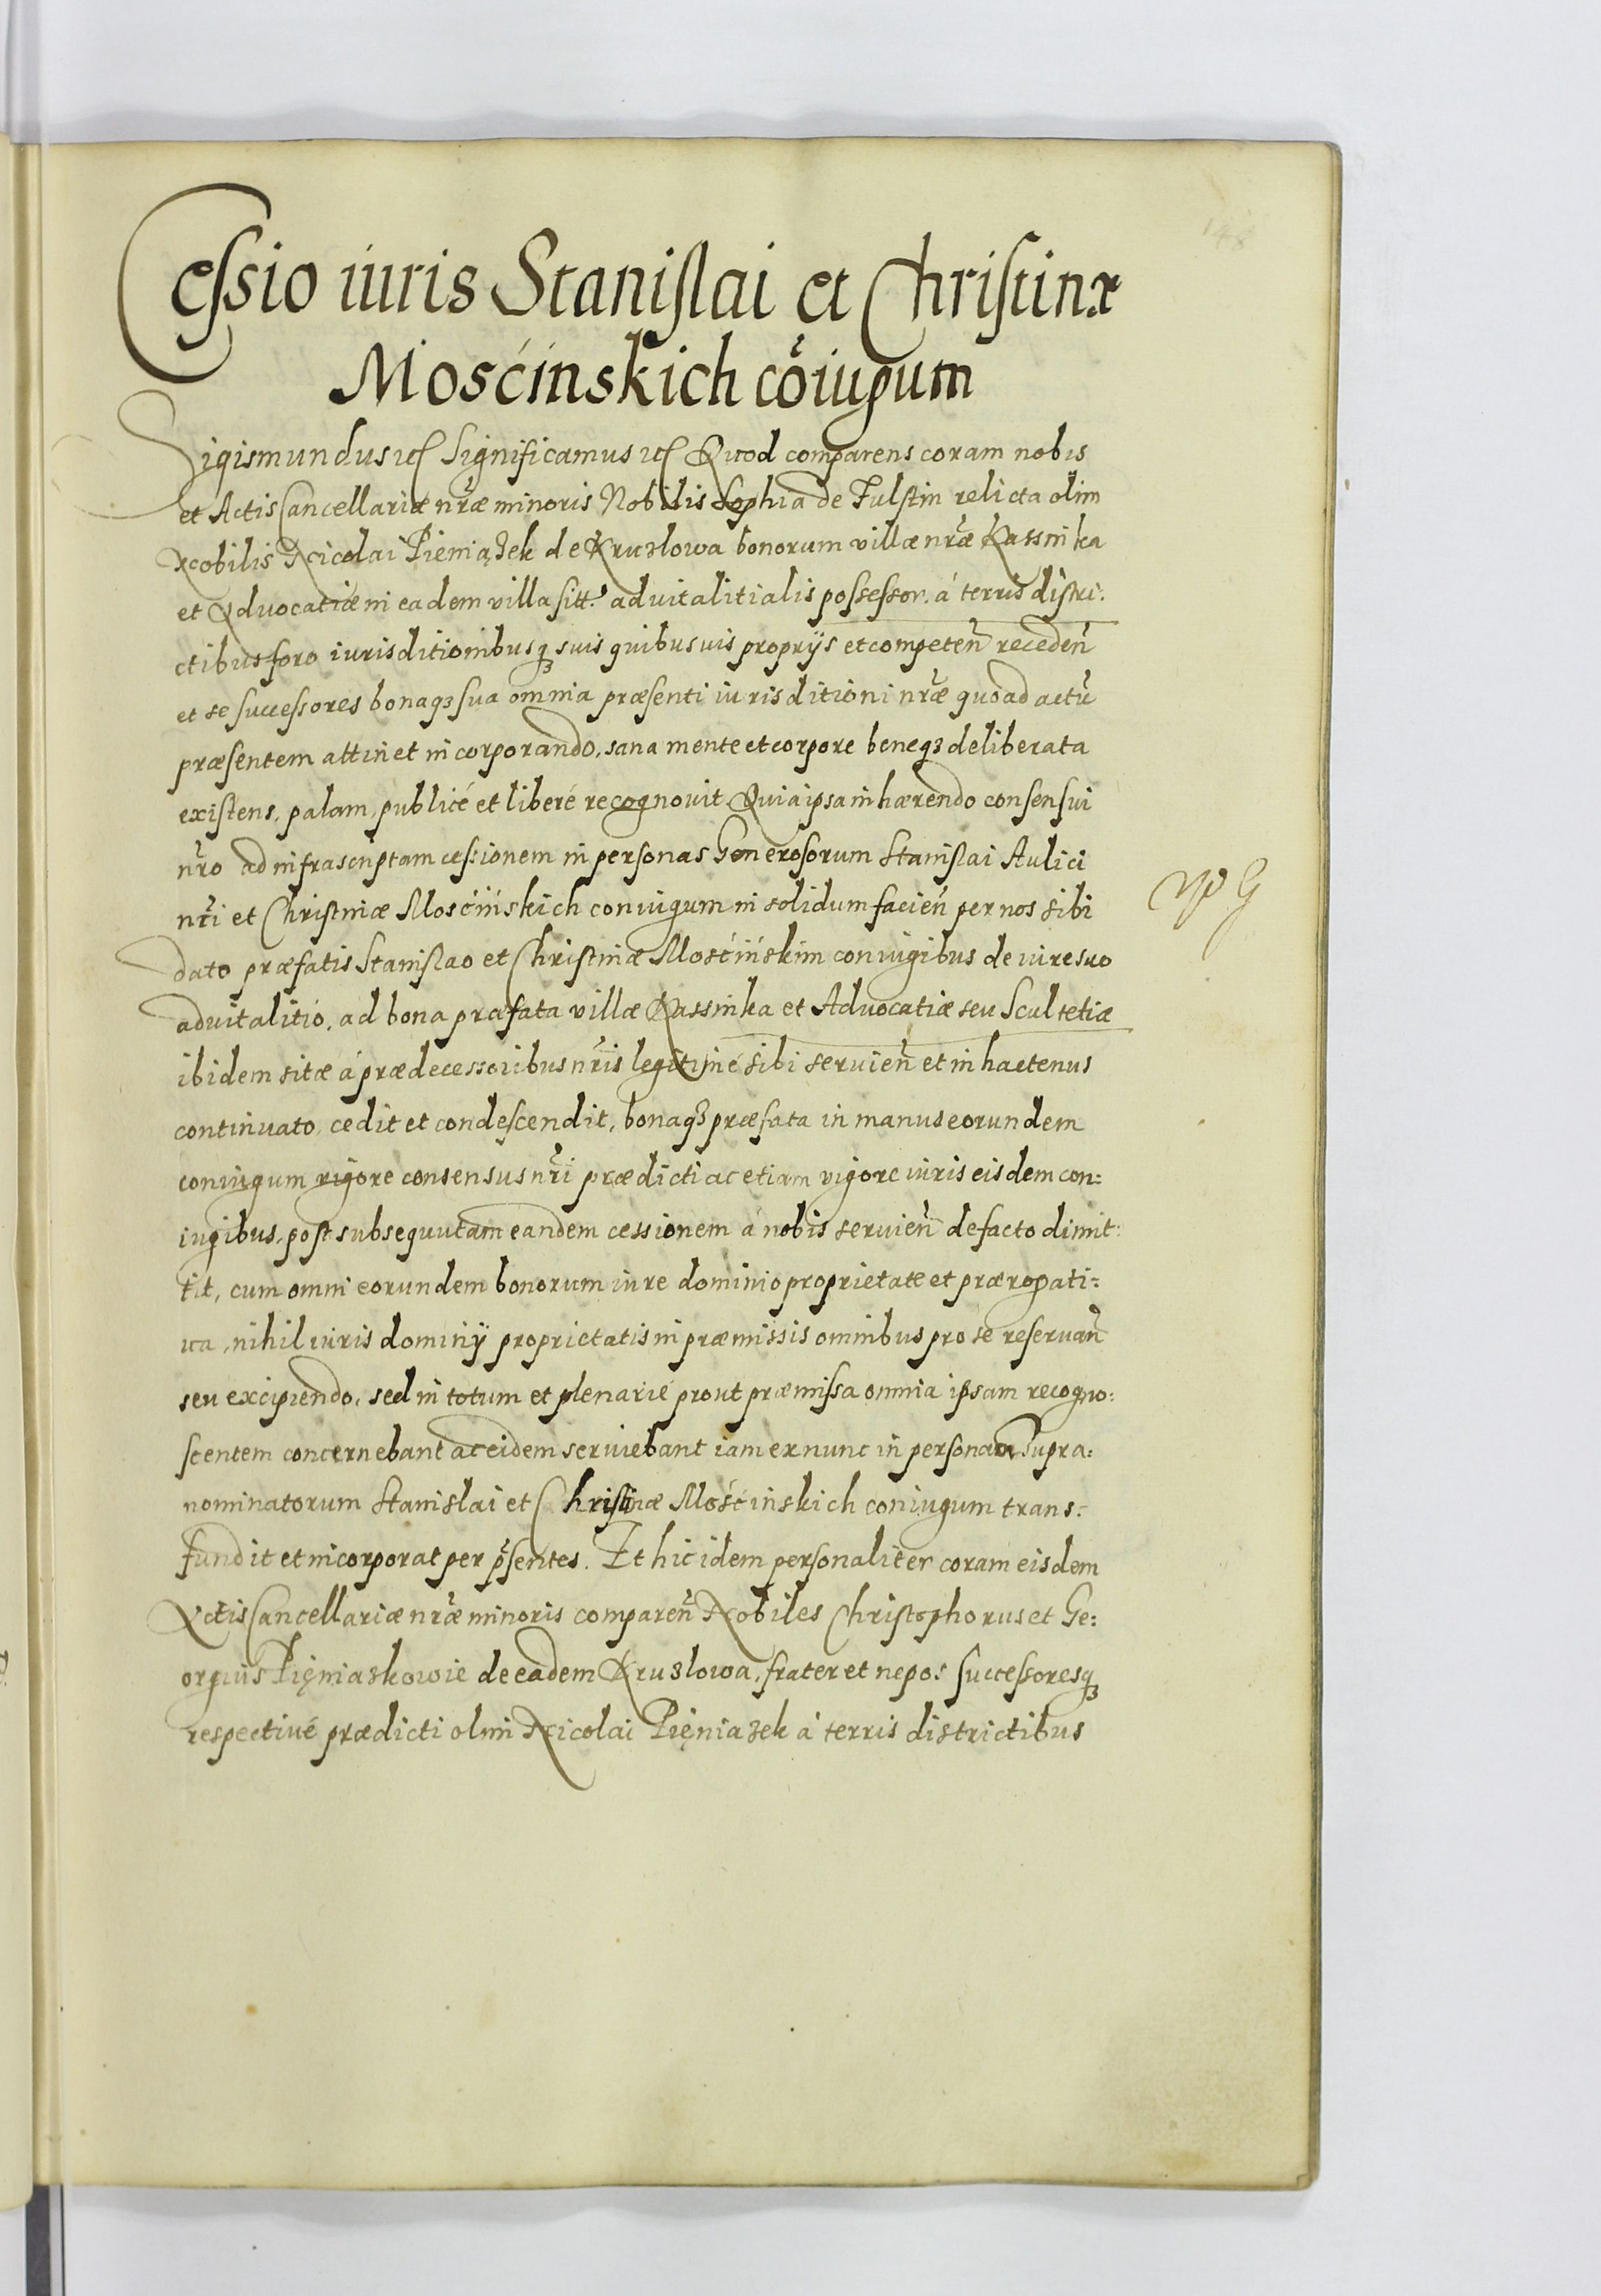 148
Cessio iuris Stanislai et Christinæ
Mosćinskich cõiugum
Sigismundus etc Significamus etc Quod comparens coram nobis
et Actis Cancellariæ nr̃æ minoris Nobilis Sophia de Fulstin relicta olim
Nobilis Nicolai Pieniążek de Kruzlowa bonorum villæ nr̃æ Kassinka
et Advocatiæ in eadem villa sitt. advitalitialis possessor. á terris distri:
ctibus foro iurisditionibusq3 suis quibusuis proprijs et competen̄ receden̄
et se successores bonaq3 sua omnia præsenti iurisditioni nr̃æ quoad actū
præsentem attinet incorporando, sana mente et corpore beneq3 deliberata
existens, palam, publicé et liberé recognouit. Quia ipsa inhærendo consensui
nr̃o ad infrascriptam cessionem in personas Generosorum Stanislai Aulici
nr̃i et Christinæ Mosćińskich coniugum in solidum facień per nos sibi
dato præfatis Stanislao et Christinæ Mosćińskim coniugibus de iure suo
advitalitio, ad bona præfata villæ Kassinka et Advocatiæ seu Scultetiæ
ibidem sitæ á prædecessoribus nr̃is legitimé sibi seruien̄ et in hactenus
continuato, cedit et condescendit, bonaq3 præfata in manus eorundem
coniugum vigore consensus nr̃i prædicti ac etiam vigore iuris eisdem con:
iugibus, post subsequutam eandem cessionem á nobis seruien̄ de facto dimit:
tit, cum omni eorundem bonorum iure dominio proprietate et prærogati:
ua, nihil iuris dominij proprietatis in præmissis omnibus pro se reseruan̄
seu excipiendo, sed in totum et plenarié prout præmissa omnia ipsam recogno:
scentem concernebant ac eidem seruiebant iam ex nunc in personam supra:
nominatorum Stanislai et Christinæ Mosćinskich coniugum trans:
fundit et incorporat per p̃sentes. Et hic idem personaliter coram eisdem
Actis Cancellariæ nr̃æ minoris comparen̄ Nobiles Christophorus et Ge:
orgius Pięniaskowie de eadem Kruzlowa, frater et nepos successoresq3
respectiué prædicti olim Nicolai Pięniazek á terris districtibus